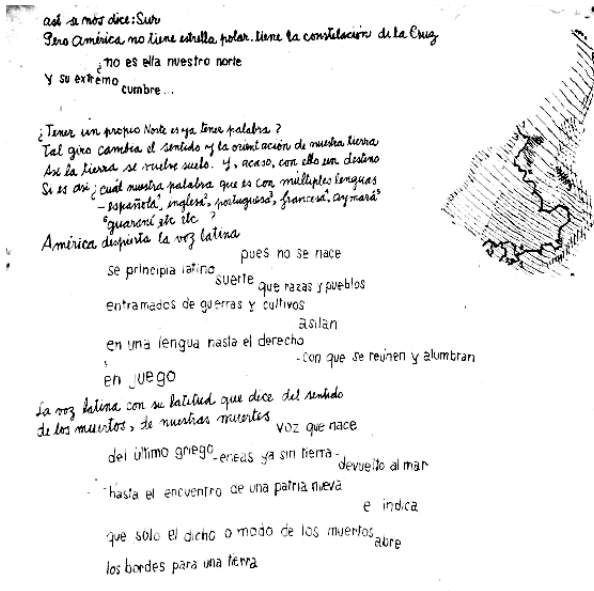 así se nos dice: Sur
Pero América no tiene estrella polar. tiene la constelación de la Cruz
¿no es ella nuestro norte
y su extremo
cumbre...
¿Tener un propio Norte es ya tener palabra?
Tal giro cambia el sentido y la orientación de nuestra tierra
Así la tierra se vuelve suelo. Y, acaso, con ello un destino
Si es así ¿cuál nuestra palabra que es con múltiples lenguas
- española, inglesa, portuguesa, francesa, aymará
guaraní etc etc ?
América despierta la voz latina
pues no se nace
se principia latino
suerte
que razas y pueblos
entramados de guerras y cultivos
asilan
en una lengua hasta el derecho
- con que se reúnen y alumbran
en juego
La voz latina con su latitud que dice del sentido
de los muertos, de nuestras muertes
voz que nace
del último griego
- eneas ya sin tierra -
devuelto al mar
hasta el encuentro de una patria nueva
e indica
que sólo el dicho o modo de los muertos
abre
los bordes para una tierra